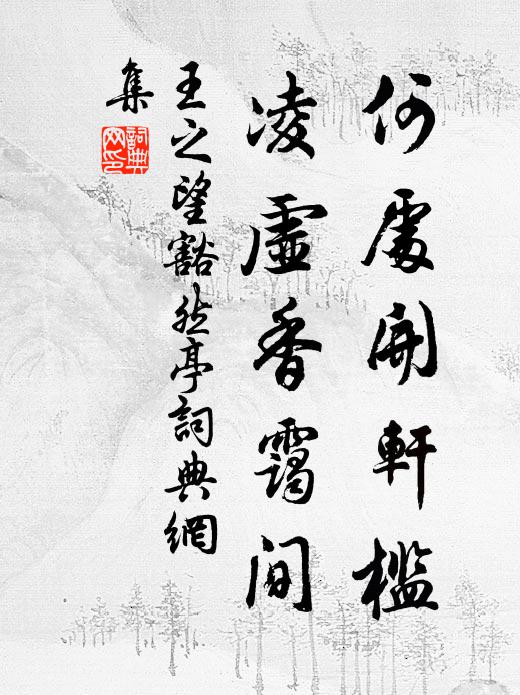 何處開軒檻
凌虛香靄間
王之望豁然亭詞典網
集
詞典
网印